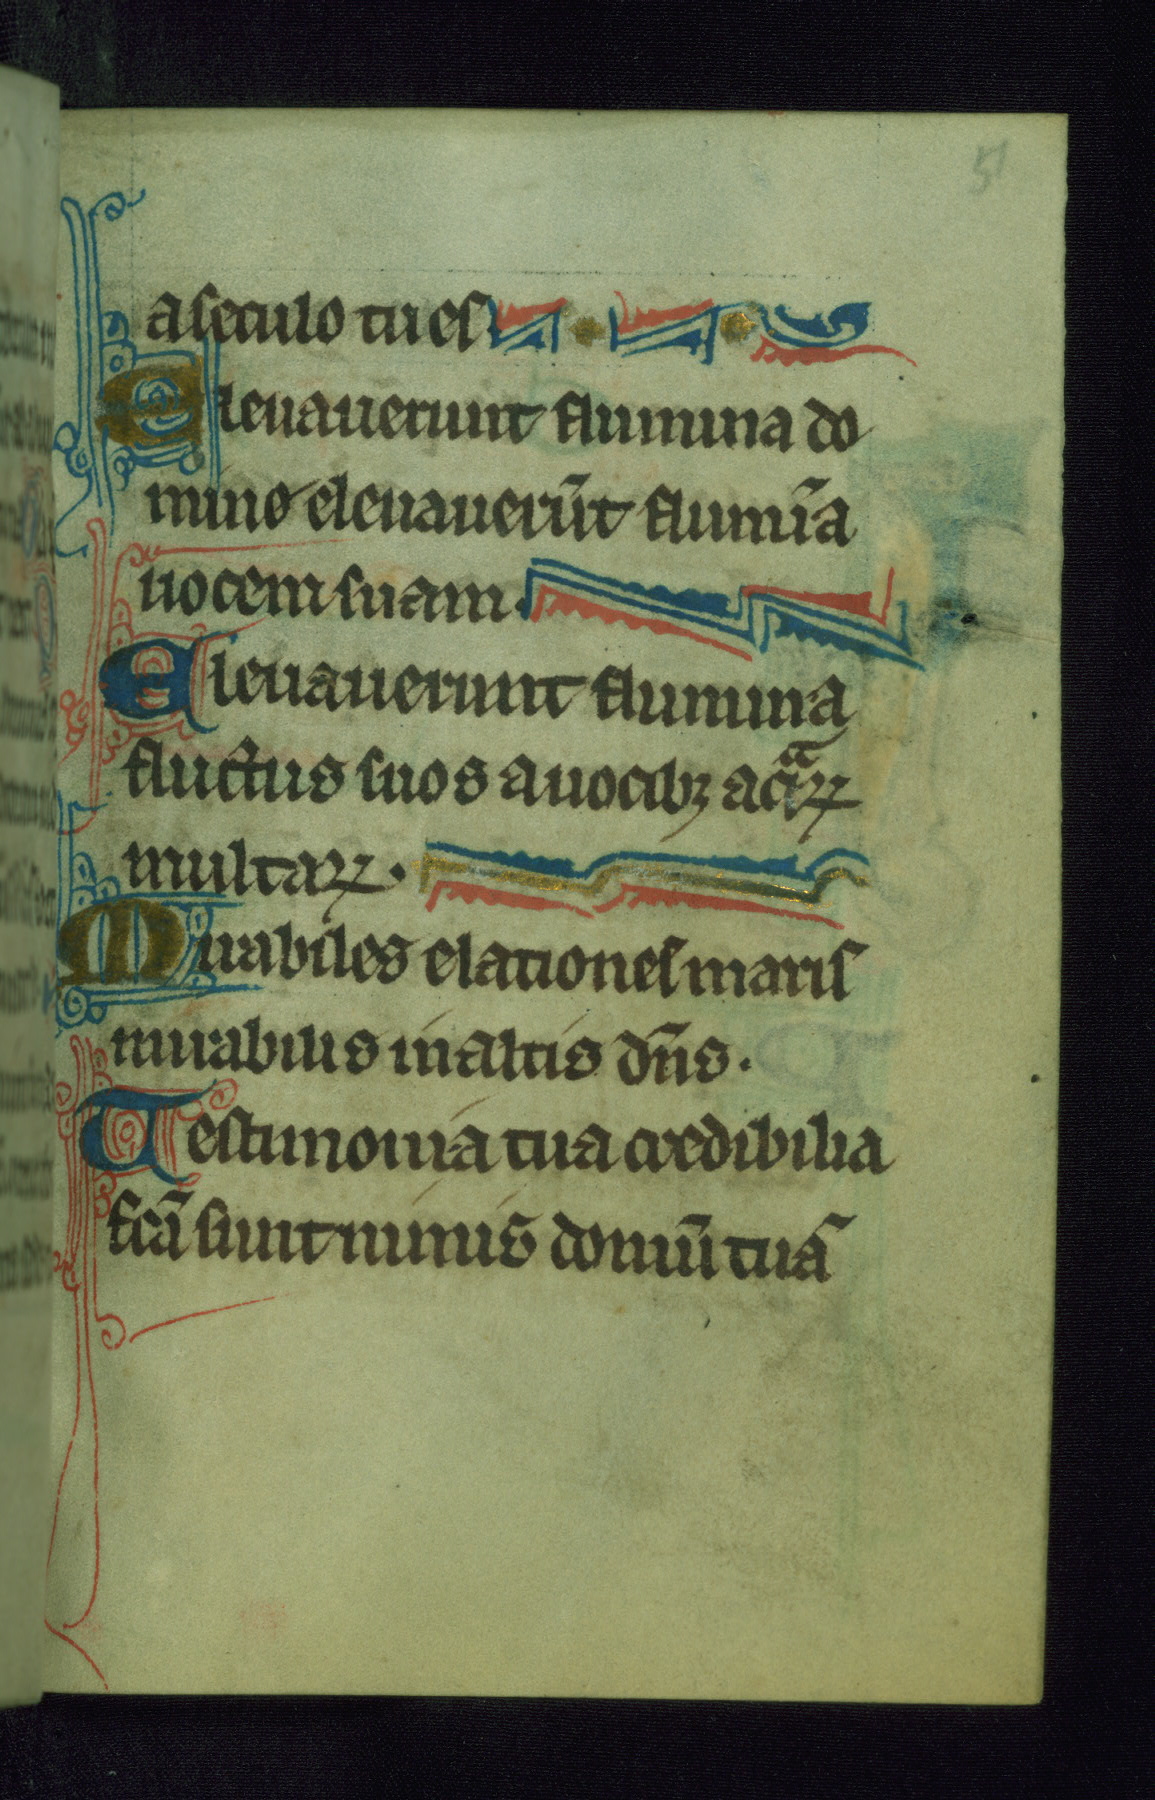 51
a seculo tu es
Eleuauerunt flumina do
mino eleuauerūt flumīa
uocem suam.
Eleuauerunt flumina
fluctus suos a uocibꝫ aqͣꝝ
multaꝝ.
Mirabiles elationes maris
mirabilis in altis dn̄s.
Testimonia tua credibilia
fc̄a sunt nimis domū tuā